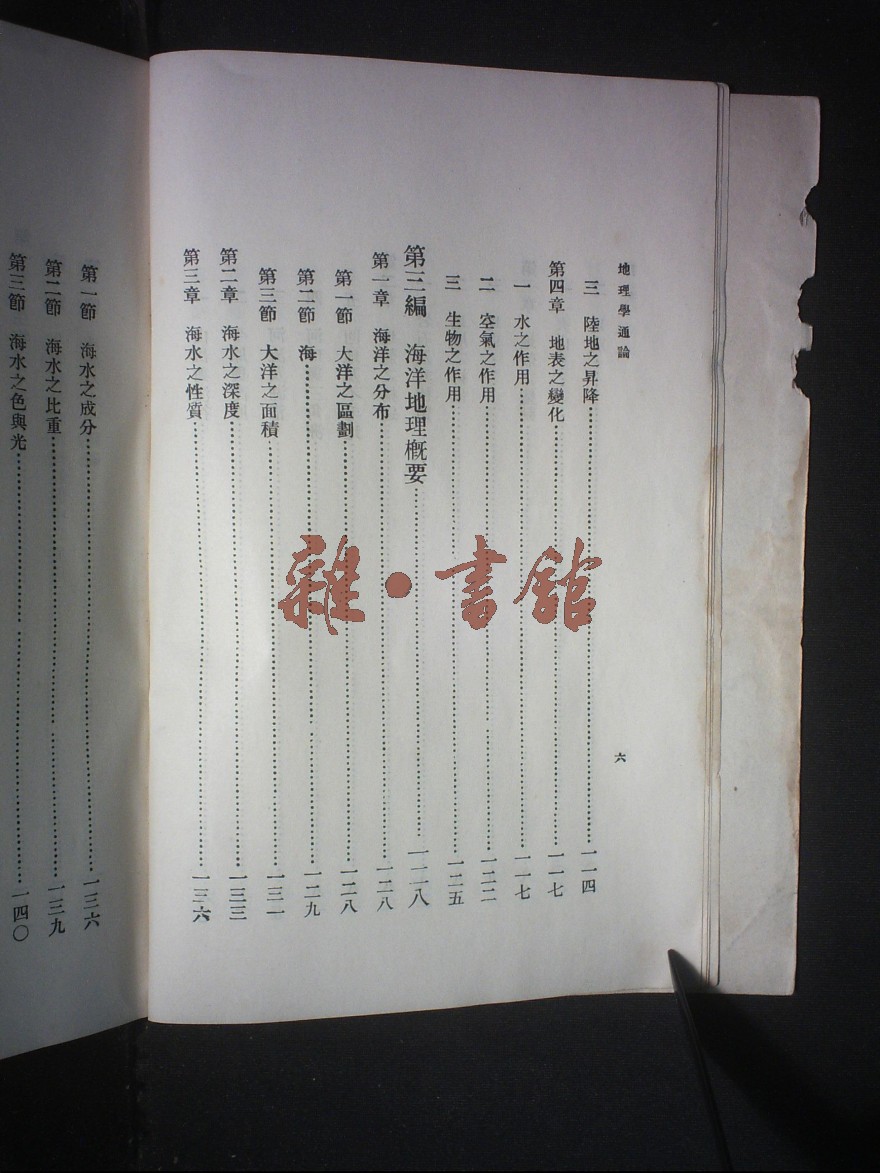 地理學通論
六
三 陸地之昇降 一一四
第四章 地表之變化 一一七
一 水之作用 一一七
二 空氣之作用 一二二
三 生物之作用 一二五
第三編 海洋地理概要 一二八
第一章 海洋之分布 一二八
第一節 大洋之區劃 一二八
第二節 海 一二九
第三節 大洋之面積 一三一
第二章 海水之深度 一三三
第三章 海水之性質 一三六
第一節 海水之成分 一三六
第二節 海水之比重 一三九
第三節 海水之色與光 一四〇
雜·書館